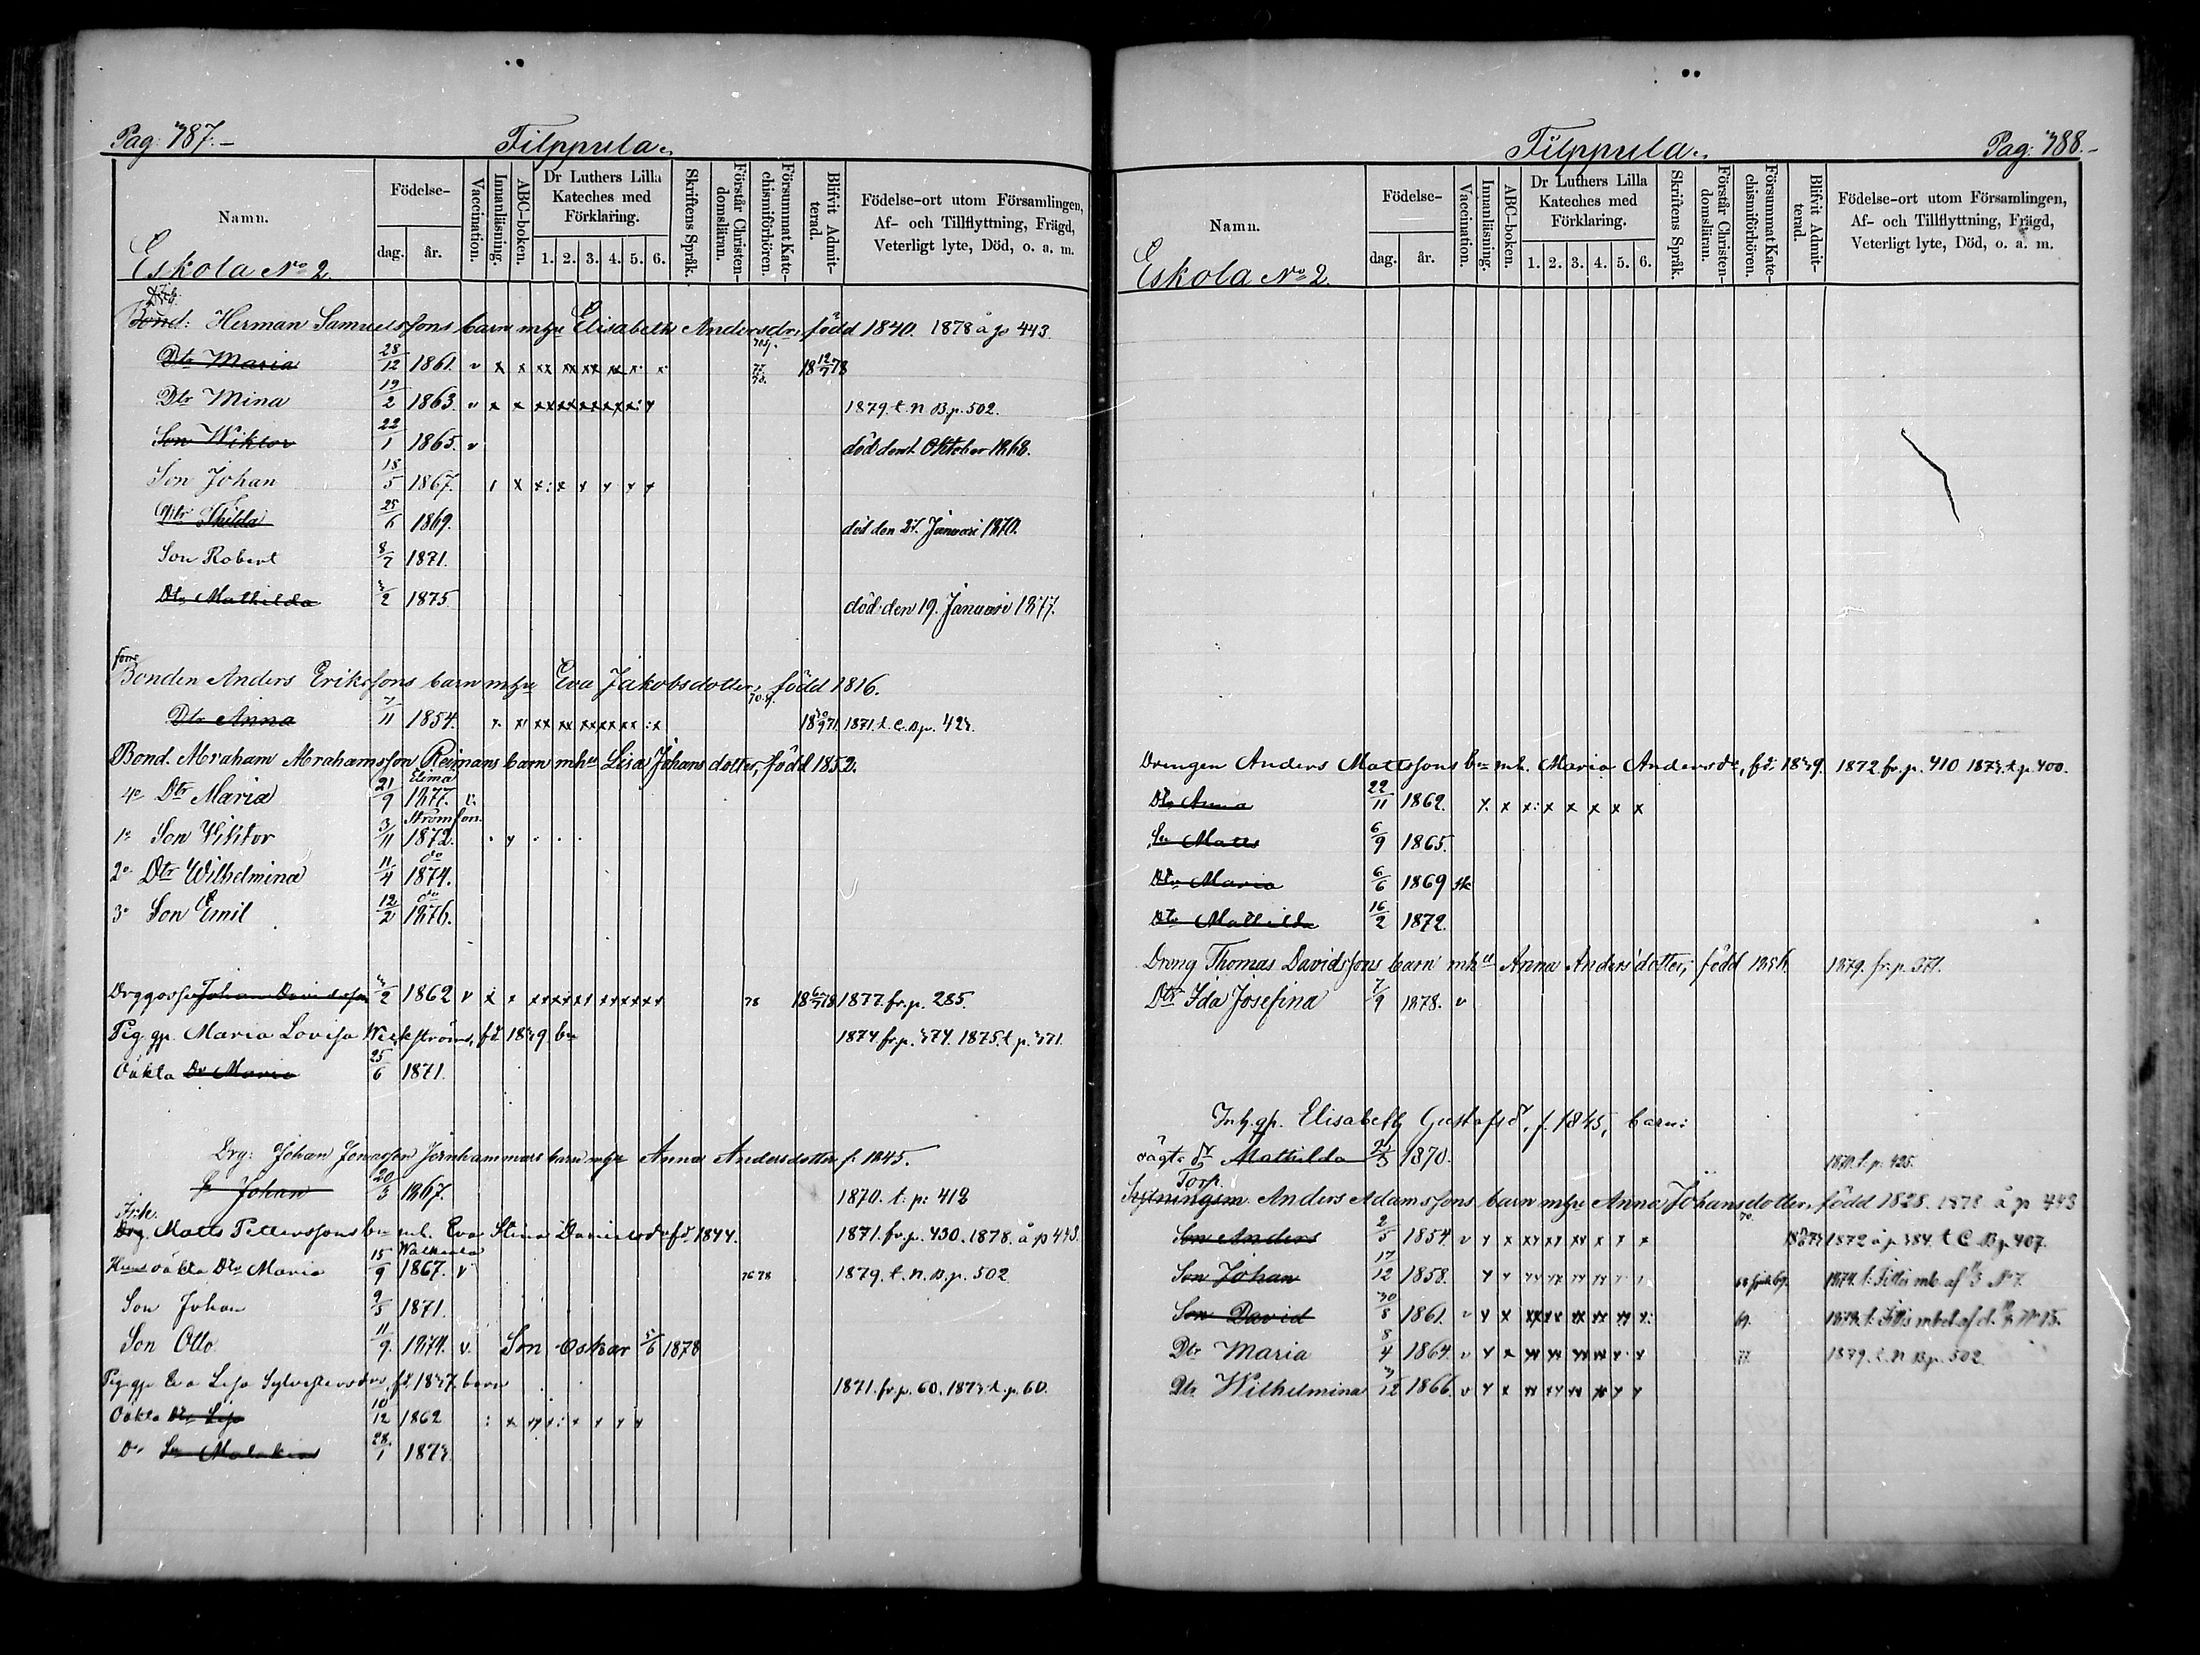 Pag: 387.- Filppula.
Namn. Födelse- dag. år. Vaccination. Innanläsning. ABC-boken. Dr Luthers Lilla Kateches med Förklaring. 1. 2. 3. 4. 5. 6. Skriftens Språk. Förstår Christendomsläran. Försummat Katechismiförhören. Blifvit Admitterad. Födelse-ort utom Församlingen, Af- och Tillflyttning, Frägd, Veterligt lyte, Död, o. a. m.
Eskola No 2.
Bond: Herman Samuelssons barn mhu Elisabeth Andersdr, född 1840. 1878 å p 443.
Dtr Maria 28/12 1861. v x x xx xx xx xx x x 18 12/7 78
Dtr Mina 19/2 1863. v x x 1879. t. N B p. 502.
Son Wiktor 22/1 1865. v död den 1. Oktober 1868.
Son Johan 18/5 1867.
Dtr Thilda 25/6 1869. död den 27. Januari 1870.
Son Robert 8/7 1871.
Dtr Mathilda 3/2 1875. död den 19. Januari 1877.
Bonden Anders Erikssons barn mhu Eva Jakobsdotter, född 1816.
Dtr Anna 7/11 1854. 1871. t. C. B p. 423.
Bond. Abraham Abrahamsson Reimans barn mhu Lisa Johansdotter, född 1852.
4o Dtr Maria 21/9 Elimä 1877. v.
1o Son Viktor 3/11 Strömfors 1872.
2o Dtr Wilhelmina 11/4 do 1874.
3o Son Emil 12/2 do 1876.
Drggosse Johan Davidsson 3/2 1862 v x x 78 18 6/7 78 1877. fr. p. 285.
Pig. gp. Maria Lovisa Wickström, fd 1839 bn 1874 fr. p. 374. 1875. t. p. 371.
Oäkta Dr Maria 25/6 1871.
Drg: Johan Jonasson Jernhammars barn mhu Anna Andersdotter f. 1845.
Johan 20/3 1867. 1870. t. p: 412
Drg. Matts Petterssons bn mh. Eva Stina Davidsdr fd. 1844. 1871. fr. p. 430. 1878. å p 443.
Hus oäkta Dtr Maria 15/9 Walkeala 1867. v 76 78 1879. t. N. B. p. 502
Son Johan 9/5 1871.
Son Otto 11/9 1874. v. Son Oskar 5/6 1878
Pig. gp. Eva Lisa Sylvestersdrs, fd. 1837. barn 1871. fr. p. 60. 1873. t. p. 60.
Oäkta Dtr Lisa 10/12 1862
Do Sn Malakias 28/1 1873.
Filppula. Pag: 388.-
Namn. Födelse- dag. år. Vaccination. Innanläsning. ABC-boken. Dr Luthers Lilla Kateches med Förklaring. 1. 2. 3. 4. 5. 6. Skriftens Språk. Förstår Christendomsläran. Försummat Katechismiförhören. Blifvit Admitterad. Födelse-ort utom Församlingen, Af- och Tillflyttning, Frägd, Veterligt lyte, Död, o. a. m.
Eskola No 2.
Drengen Anders Mattssons bn mh. Maria Andersdr, fd. 1839. 1872. fr. p. 410 1873. t. p. 400.
Dtr Anna 22/11 1862. x x x: x x x x x
Sn Matts 6/9 1865.
Dtr Maria 6/6 1869 sk
Dtr Mathilda 16/2 1872.
Dreng Thomas Davidssons barn mhu Anna Andersdotter, född 1856. 1879. fr. p. 371.
Dtr Ida Josefina 7/9 1878. v
Inh. gp. Elisabeth Gustafsdr, f. 1845, barn:
oägta dr Mathilda 1870. 1871. t. p. 425.
Torp. Anders Adamssons barn mhu Anna Johansdotter, född 1828. 1878 å p 443
Son Anders 2/5 1854. v 1872 å p. 384. t. C. B p. 407.
Son Johan 17/12 1858.
Son David 30/8 1861. v 69.
Dtr Maria 8/4 1864. v 77. 1879. t. N B p. 502.
Dtr Wilhelmina 3/12 1866. v